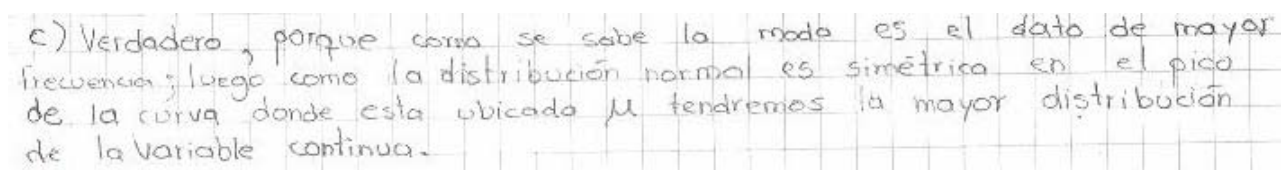 c) Verdadero, porque como se sabe la moda es el dato de mayor
frecuencia; luego como la distribución normal es simétrica en el pico
de la curva donde esta ubicado μ tendremos la mayor distribución
de la variable continua.